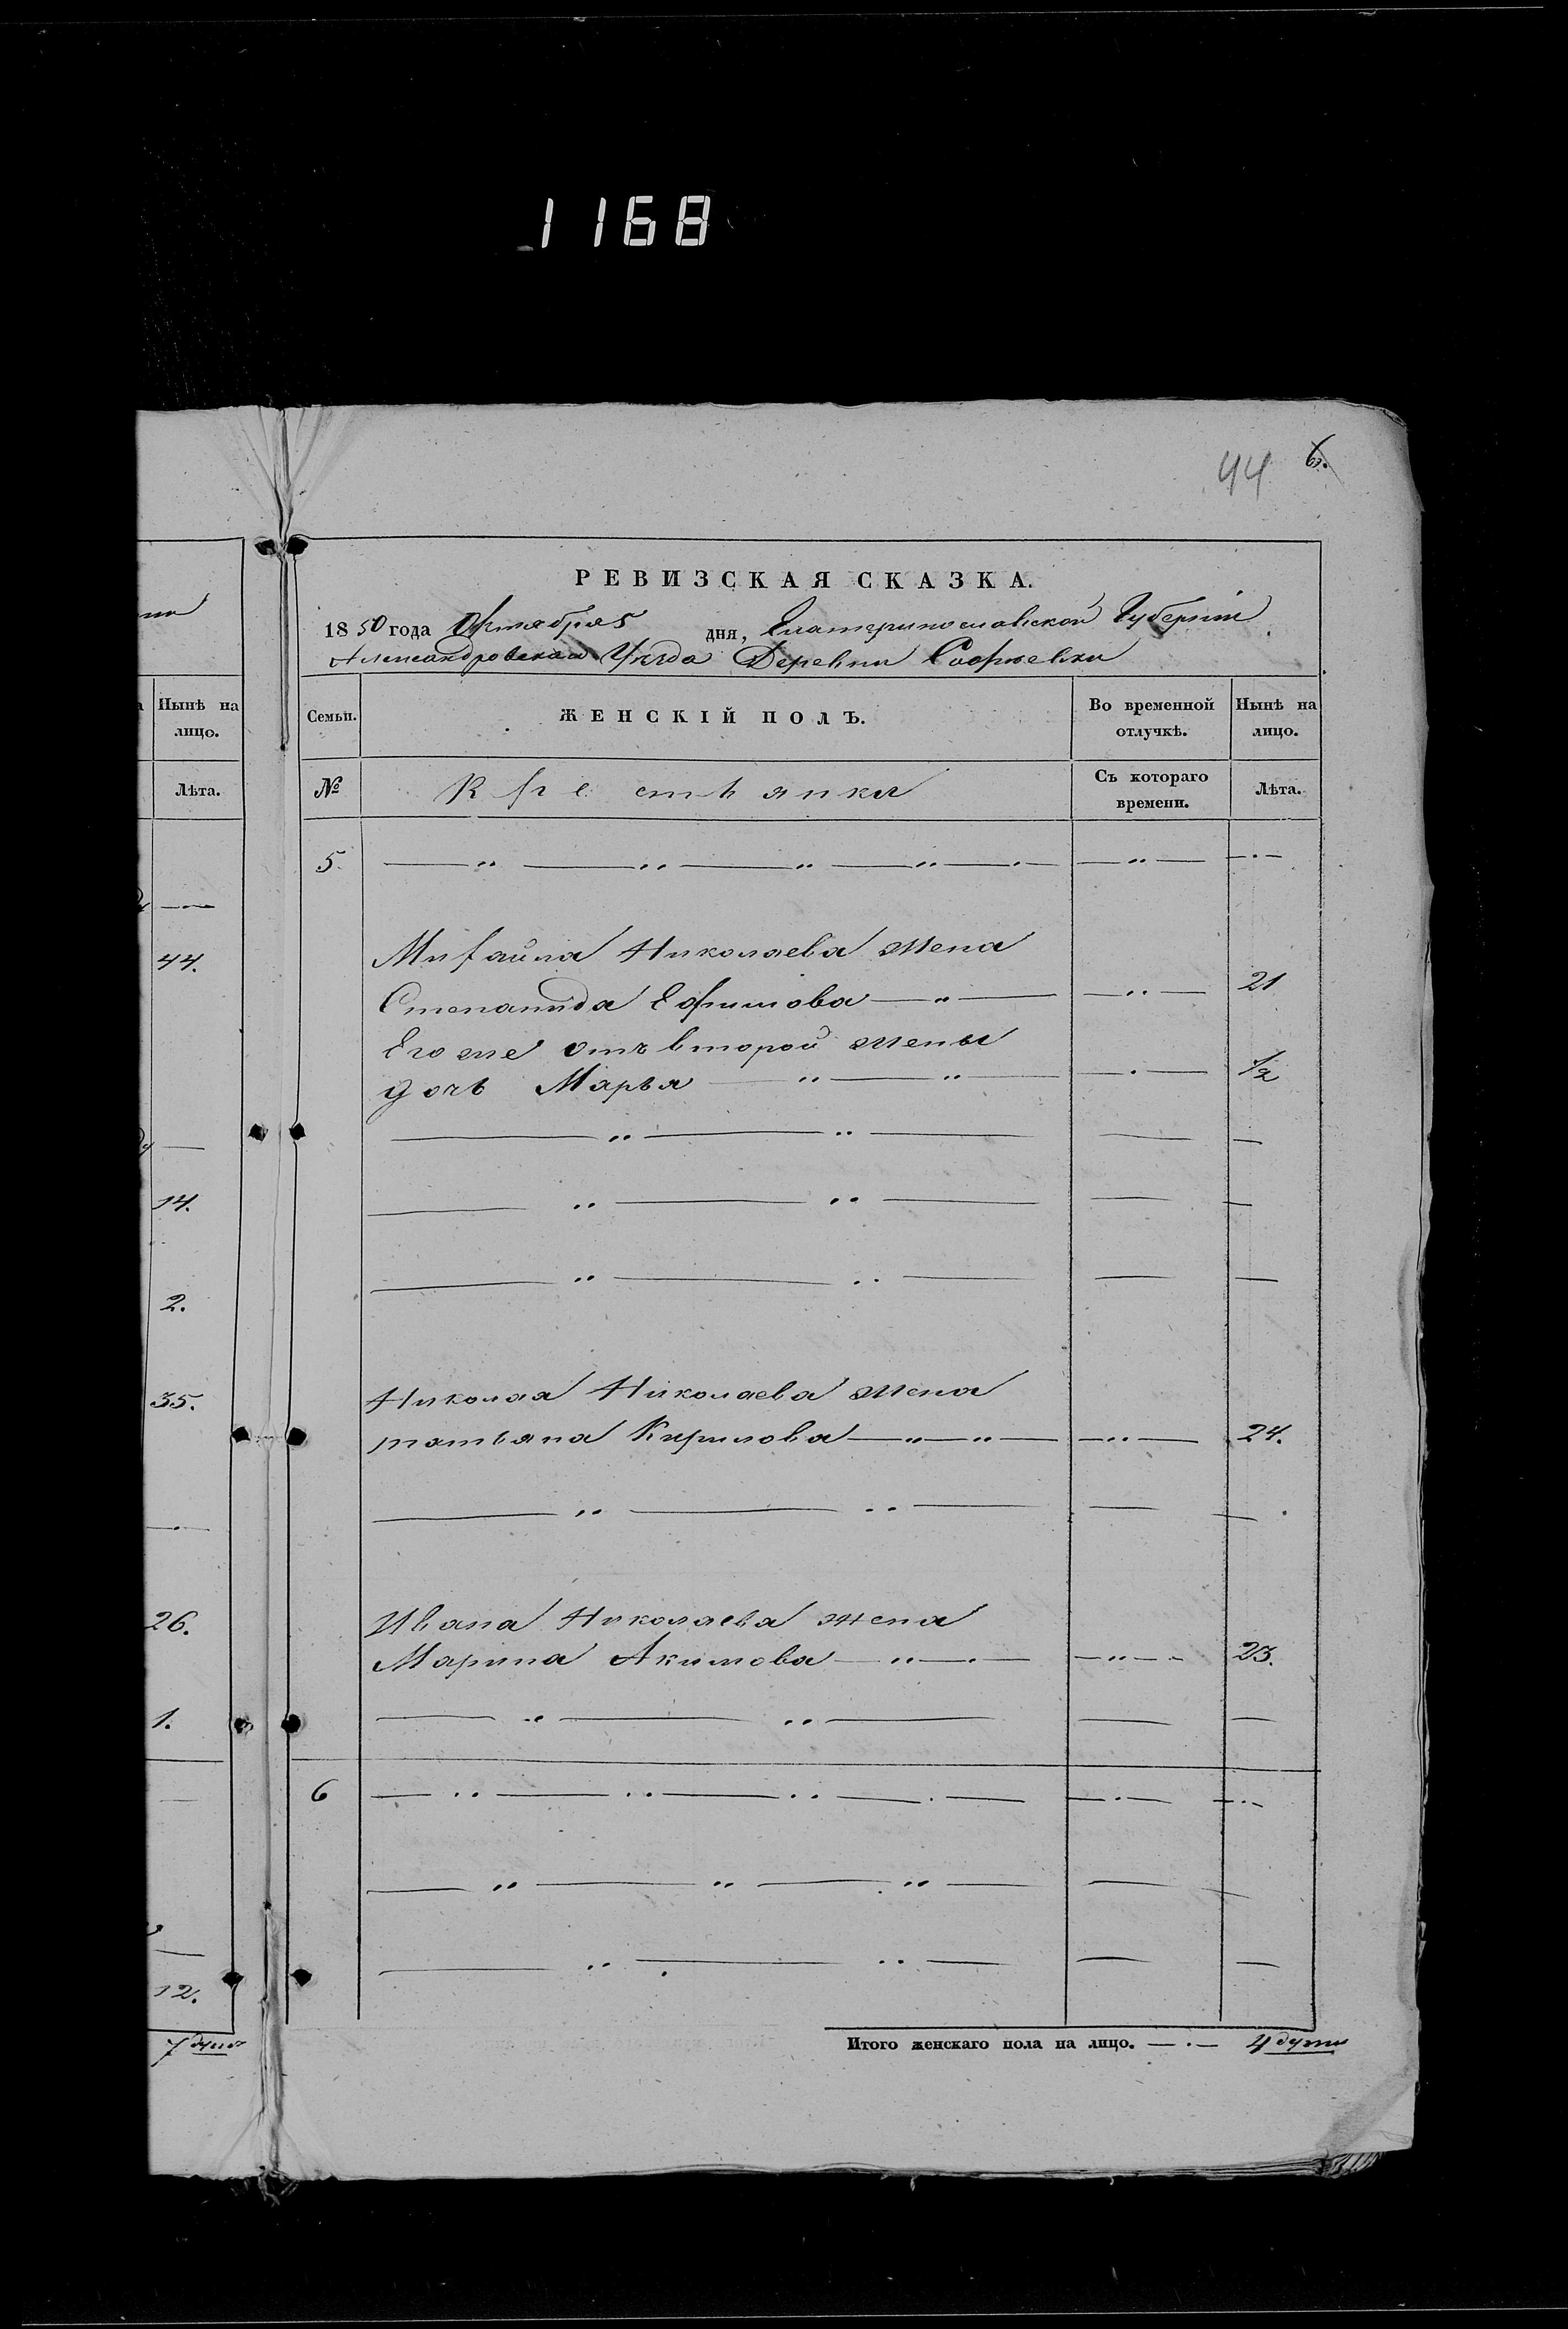 1168
44 6.
РЕВИЗСКАЯ СКАЗКА.
1850 года Октября 5 дня, Екатеринославской Губерніи
Александровскаго Уѣзда Деревни Софіевки
Нынѣ на лицо.
Лѣта.
44.
14.
2.
35.
26.
1.
12.
7 душъ
Семьи. ЖЕНСКІЙ ПОЛЪ. Во временной отлучкѣ. Нынѣ на лицо.
№ Крестьянки Съ котораго времени. Лѣта.
5.
Михайла Николаева жена
Степанида Ефимова 21
Его же отъ второй жены
дочь Марья 1/2
Николая Николаева жена
татьяна Кирилова 24.
Ивана Николаева жена
Марина Акимова 23.
6
Итого женскаго пола на лицо. 4 души